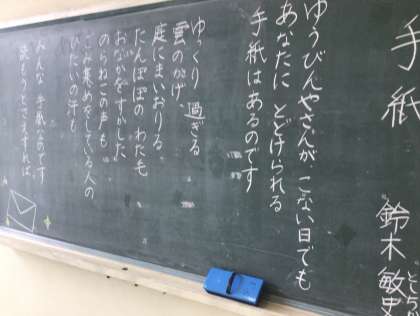 手紙
鈴木敏史
ゆうびんやさんが こない日でも
あなたに とどけられる
手紙はあるのです
ゆっくり 過ぎる
雲のかげ、
庭にまいおりる
たんぽぽの わたも
おなかをすかした
のらねこの声も
ごみ集めをしている人の
ひたいの汗も
みんな 手紙なのです
読もうとさえすれば